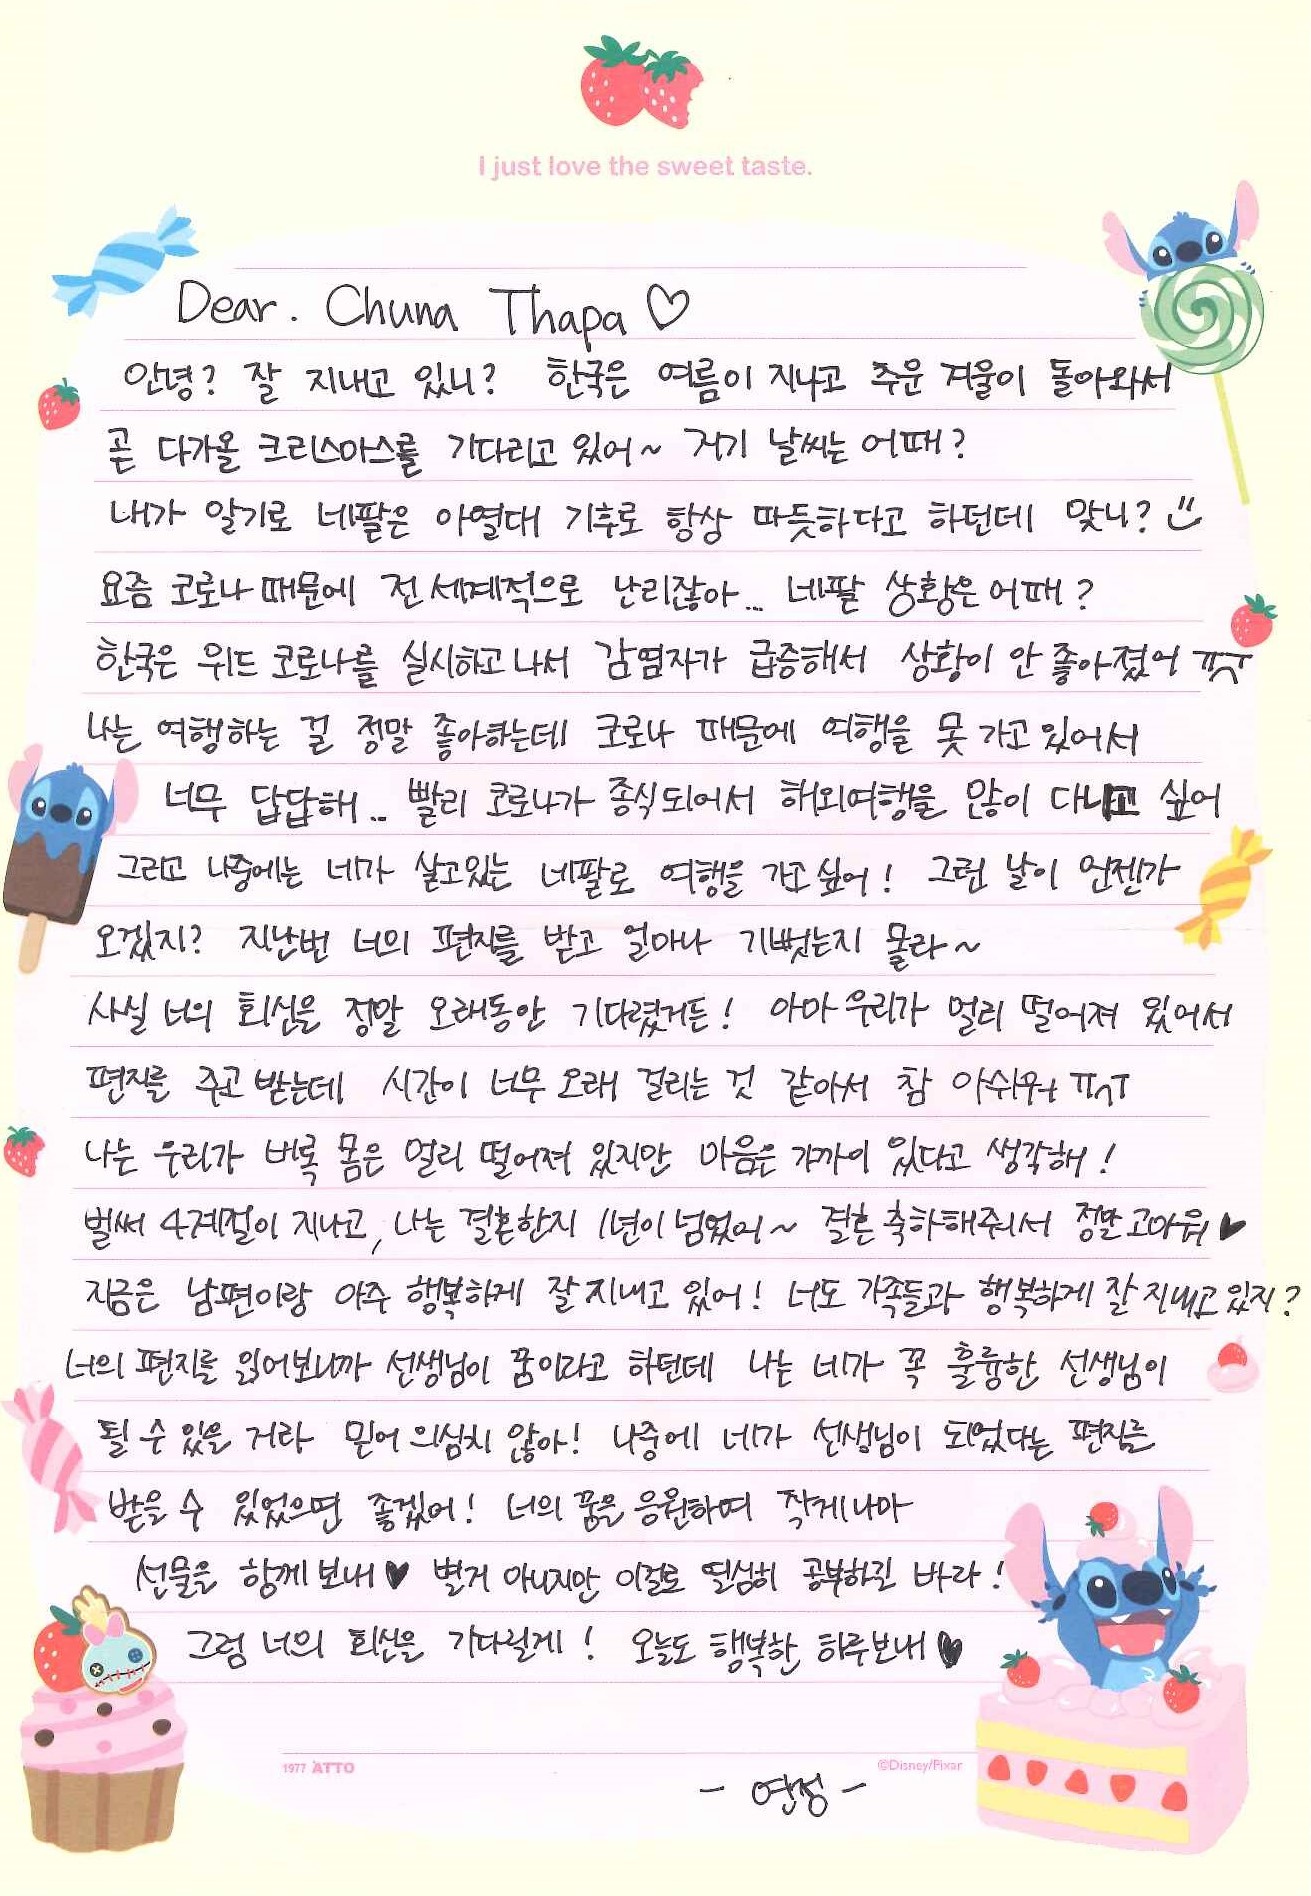 I just love the sweet taste.
Dear. Chuna Thapa ♡
안녕? 잘 지내고 있니? 한국은 여름이 지나고 추운 겨울이 돌아와서
곧 다가올 크리스마스를 기다리고 있어~ 거기 날씨는 어때?
내가 알기로 네팔은 아열대 기후로 항상 따듯하다고 하던데 맞니?
요즘 코로나 때문에 전 세계적으로 난리잖아... 네팔 상황은 어때?
한국은 위드 코로나를 실시하고 나서 감염자가 급증해서 상황이 안 좋아졌어 ㅠㅜ
나는 여행하는 걸 정말 좋아하는데 코로나 때문에 여행을 못 가고 있어서
너무 답답해.. 빨리 코로나가 종식되어서 해외여행을 많이 다니고 싶어
그리고 나중에는 네가 살고있는 네팔로 여행을 가고 싶어! 그런 날이 언젠가
오겠지? 지난번 너의 편지를 받고 얼마나 기뻤는지 몰라~
사실 너의 회신을 정말 오래동안 기다렸거든! 아마 우리가 멀리 떨어져 있어서
편지를 주고 받는데 시간이 너무 오래 걸리는 것 같아서 참 아쉬워 ㅠㅅㅜ
나는 우리가 비록 몸은 멀리 떨어져 있지만 마음은 가까이 있다고 생각해!
벌써 4계절이 지나고, 나는 결혼한지 1년이 넘었어~ 결혼 축하해줘서 정말 고마워 ♥
지금은 남편이랑 아주 행복하게 잘 지내고 있어! 너도 가족들과 행복하게 잘 지내고 있지?
너의 편지를 읽어보니까 선생님이 꿈이라고 하던데 나는 네가 꼭 훌륭한 선생님이
될 수 있을 거라 믿어 의심치 않아! 나중에 네가 선생님이 되었다는 편지를
받을 수 있었으면 좋겠어! 너의 꿈을 응원하며 작게나마
선물을 함께 보내♥ 별거 아니지만 이걸로 열심히 공부하길 바라!
그럼 너의 회신을 기다릴게! 오늘도 행복한 하루보내♥
1977 ATTO
©Disney/Pixar
- 연정 -